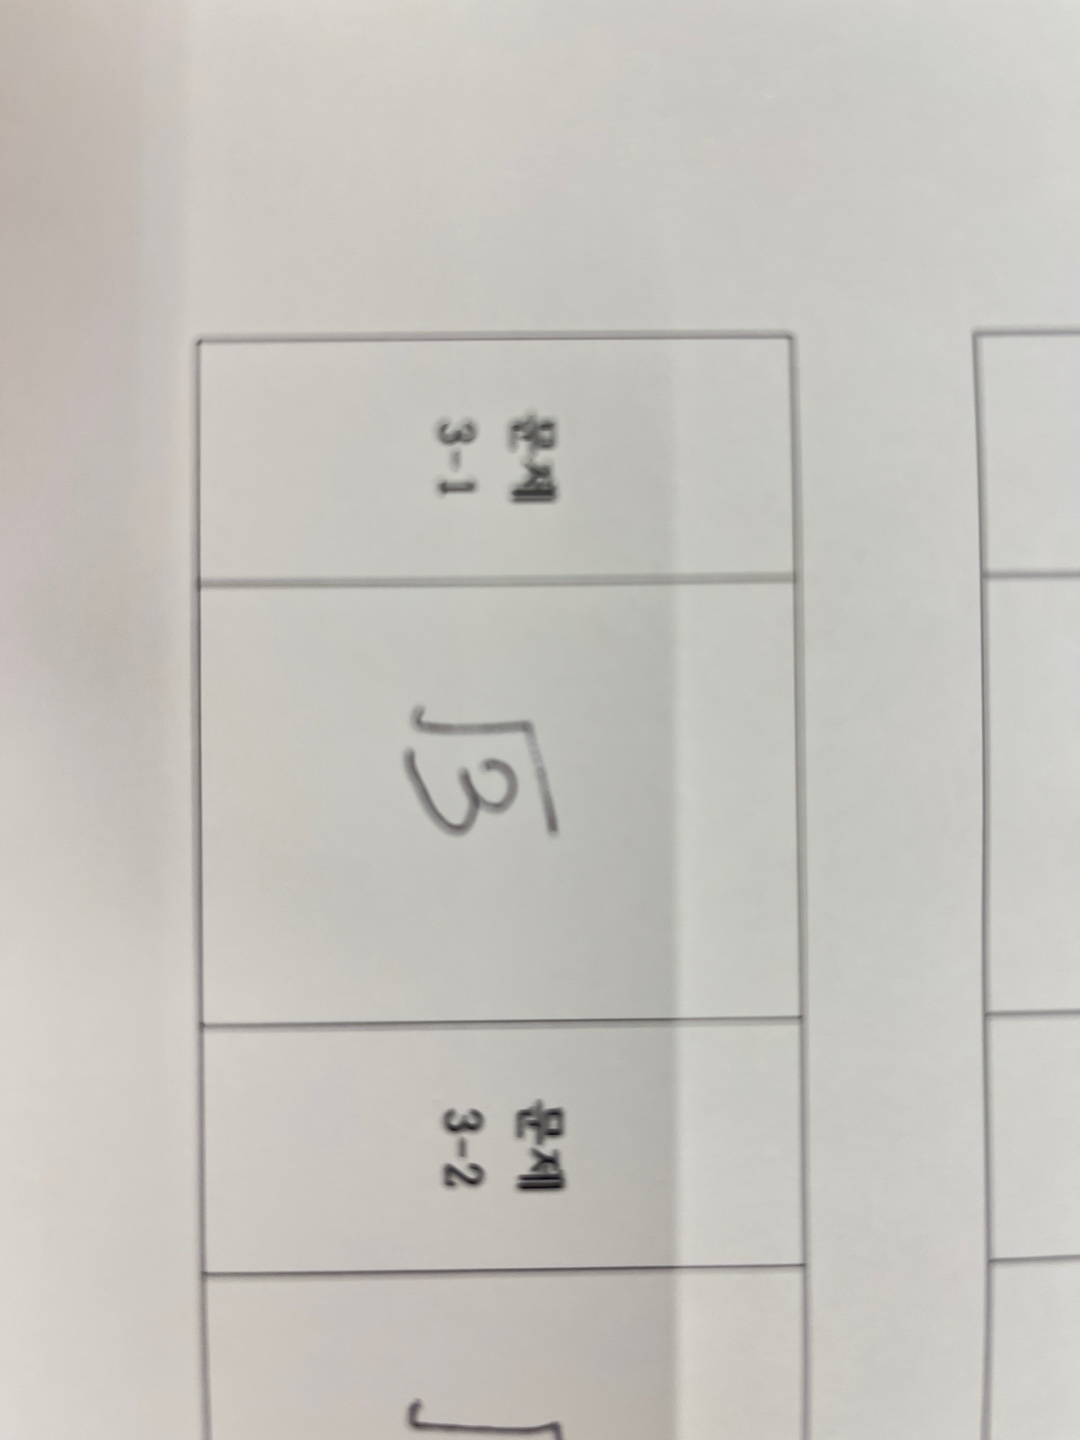 문제
3-1
√3
문제
3-2